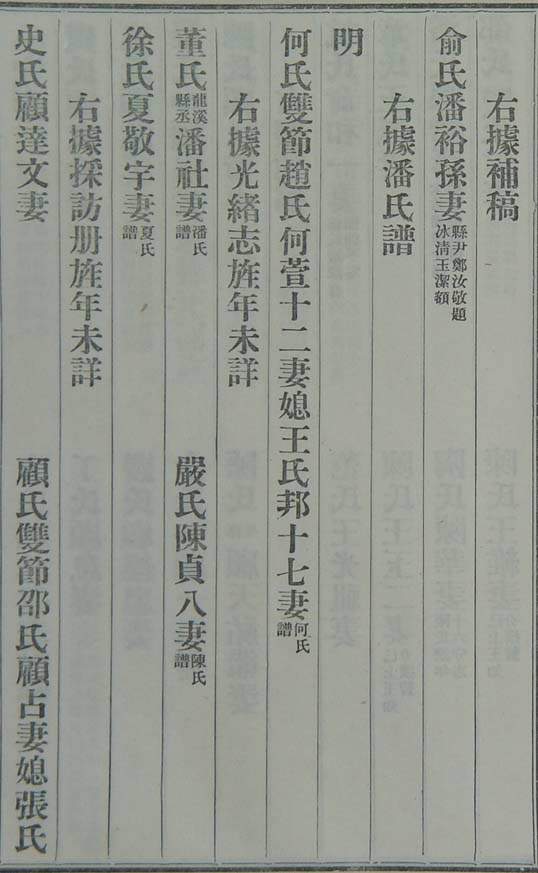 右據補稿
俞氏潘裕孫妻縣尹鄭汝敬題冰清玉潔額
右據潘氏譜
明
何氏雙節趙氏何萱十二妻媳王氏邦十七妻何氏譜
右據光緒志旌年未詳
董氏龍溪縣丞潘社妻潘氏譜 嚴氏陳貞八妻陳氏譜
徐氏夏敬宇妻夏氏譜
右據採訪册旌年未詳
史氏顧達文妻 顧氏雙節邵氏顧占妻媳張氏